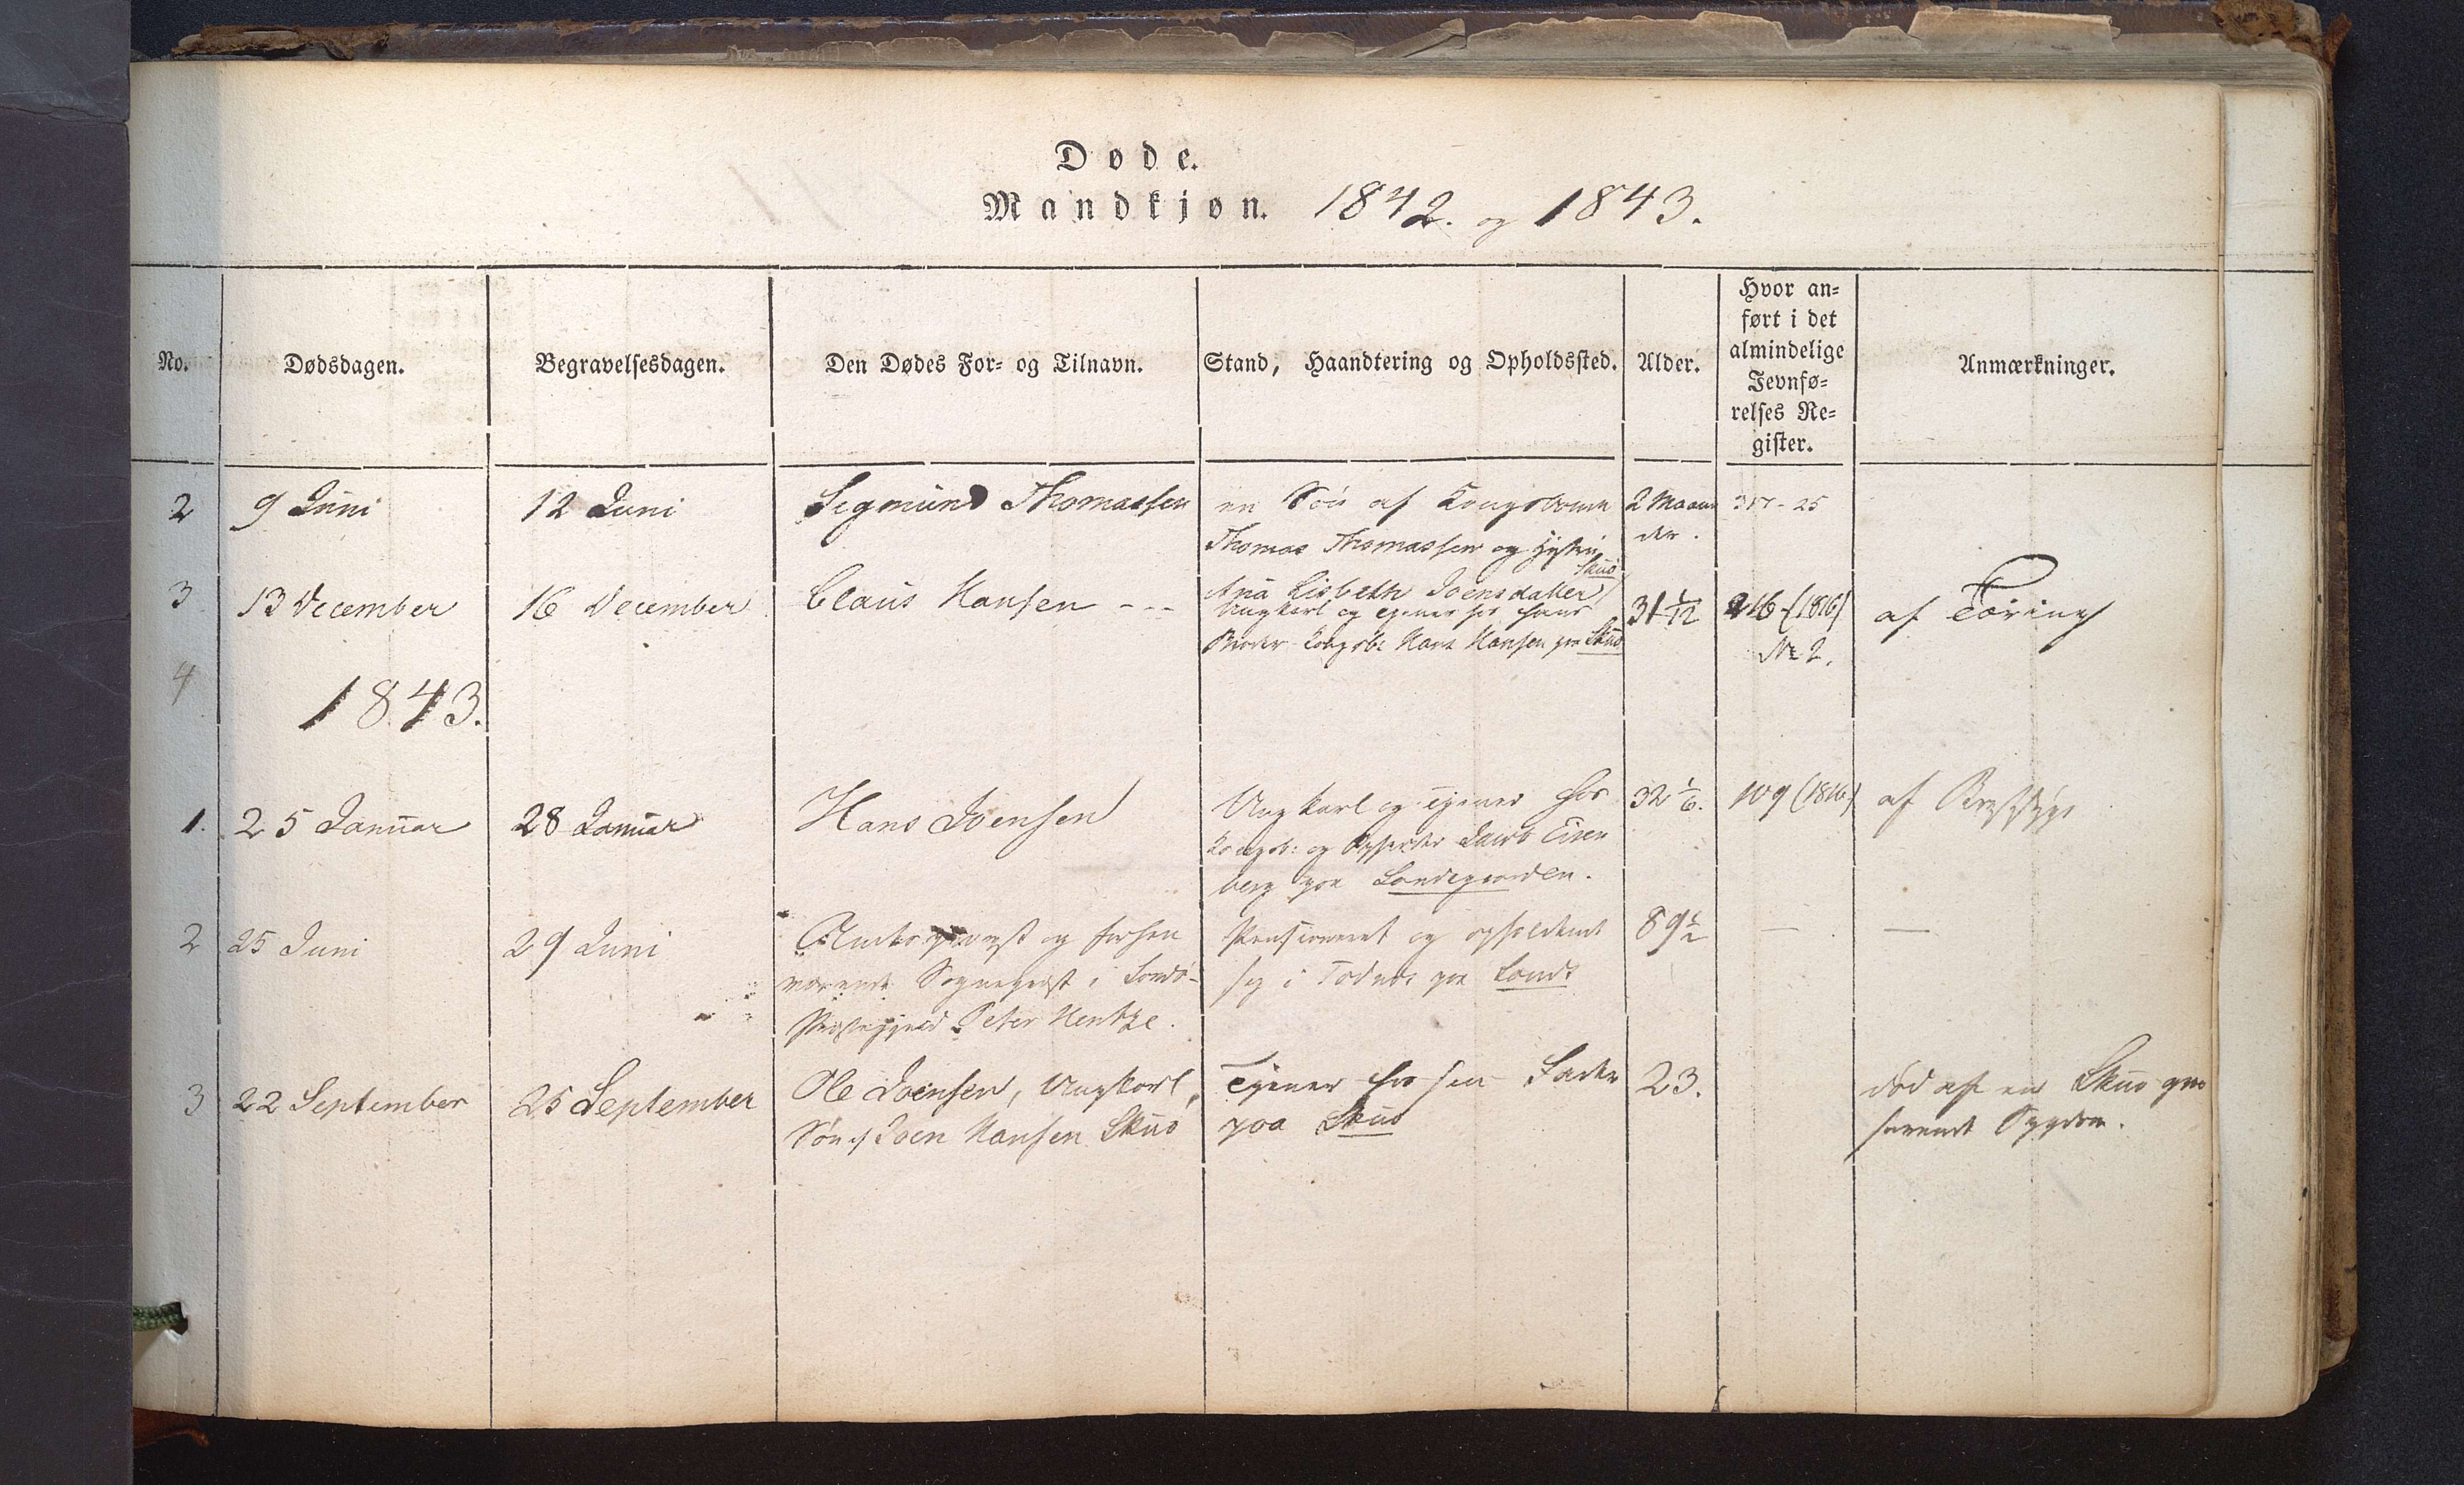 Døde.
Mandkjøn. 1842. og 1843.
No.
Dødsdagen.
Begravelsesdagen.
Den Dødes For- og Tilnavn.
Stand, Haandtering og Opholdssted.
Alder.
Hvor an-
ført i det
almindelige
Jevnfø-
relses Re-
gister.
Anmærkninger.
2 9 Juni 12 Juni Segmund Thomassen
en Søn af Kongsbonde
Thomas Thomassen og Hustru
Skuö
Ana Lisbeth Joensdatter
2 Maane
der.
317 - 25
3 13 December 16 December Claus Hansen - - -
Ungkarl og tjener hos hans
Broder Kongsb: Hans Hansen paa Skuö
31 1/12
216 (1816)
№ 2.
af Tæring
4
1843.
1. 25 Januar 28 Januar Hans Joensen
Ungkarl og tjener hos
Kongsb: og Jacob Eisen
berg paa Sandegaarden.
32 1/6.
109 (1816)
af Brystsyge
2 25 Juni 29 Juni
Amtsprovst og forhen
værende Sognepræst i Sandö-
Præstegjeld Peter Hentze.
Pensioneret og opholdende
sig i Todnæs paa Sandö
89 1/2
—
—
3 22 September 25 September
Ole Joensen, Ungkarl,
Søn af Joen Hansen Skuö
Tjener hos sin Fader
paa Skuö
23.
død af en Skuö gras
serende Sygdom.